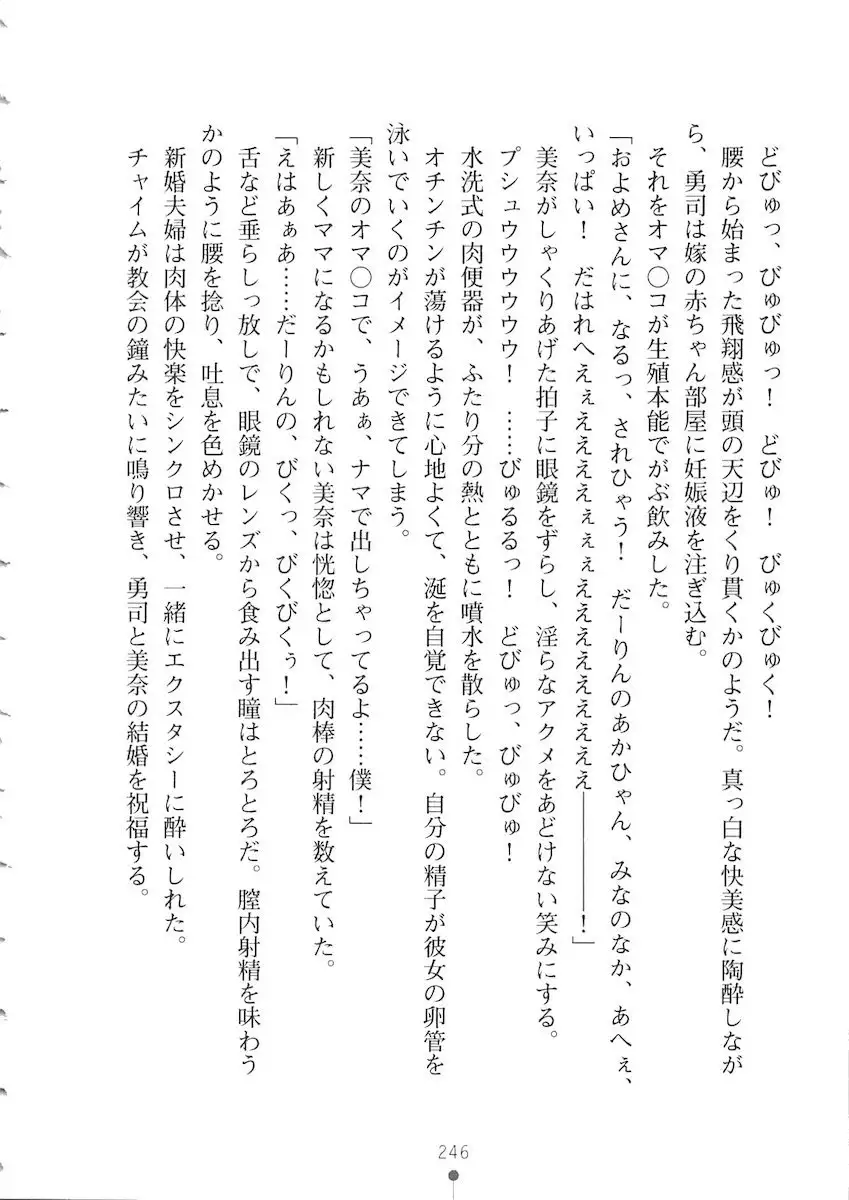 どびゅっ、びゅびゅっ！　どびゅ！　びゅくびゅく！
腰から始まった飛翔感が頭の天辺をくり貫くかのようだ。真っ白な快美感に陶酔しなが
ら、勇司は嫁の赤ちゃん部屋に妊娠液を注ぎ込む。
それをオマ〇コが生殖本能でがぶ飲みした。
「およめさんに、なるっ、されひゃう！　だーりんのあかひゃん、みなのなか、あへぇ、
いっぱい！　だはれへえぇええええぇぇえええええええええ――――！」
美奈がしゃくりあげた拍子に眼鏡をずらし、淫らなアクメをあどけない笑みにする。
プシュウウウウウウ！　……びゅるるっ！　どびゅっ、びゅびゅ！
水洗式の肉便器が、ふたり分の熱とともに噴水を散らした。
オチンチンが蕩けるように心地よくて、涎を自覚できない。自分の精子が彼女の卵管を
泳いでいくのがイメージできてしまう。
「美奈のオマ〇コで、うあぁ、ナマで出しちゃってるよ……僕！」
新しくママになるかもしれない美奈は恍惚として、肉棒の射精を数えていた。
「えはあぁあ……だーりんの、びくっ、びくびくぅ！」
舌など垂らしっ放しで、眼鏡のレンズから食み出す瞳はとろとろだ。膣内射精を味わう
かのように腰を捻り、吐息を色めかせる。
新婚夫婦は肉体の快楽をシンクロさせ、一緒にエクスタシーに酔いしれた。
チャイムが教会の鐘みたいに鳴り響き、勇司と美奈の結婚を祝福する。
246